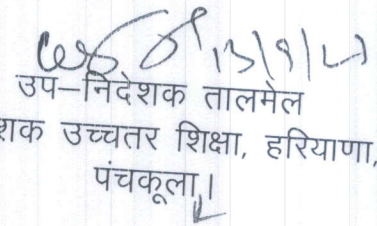 उप–निदेशक तालमेल
शक उच्चतर शिक्षा, हरियाणा,
पंचकूला।